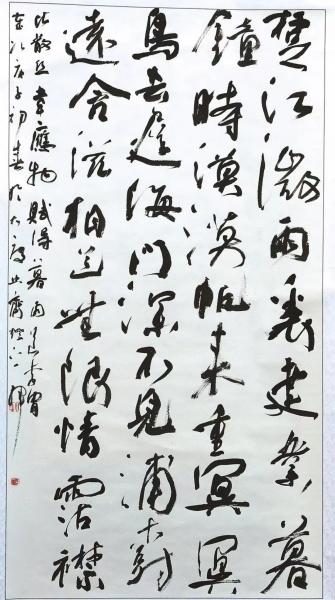 楚江微雨裏建業暮
鐘時漠漠帆來重冥冥
鳥去遲海門深不見浦樹
遠含滋相送無限情霑襟
比散丝 韋應物賦得暮雨送李胄
歲次庚子初春於